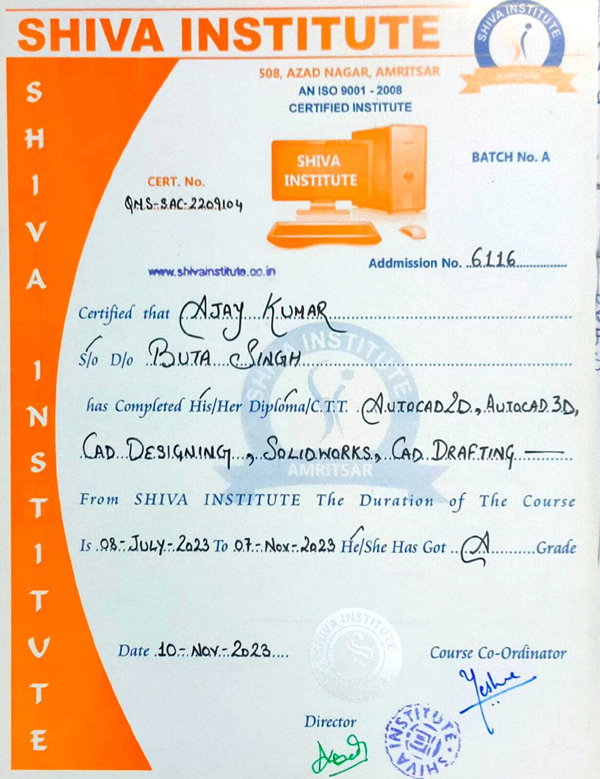 SHIVA INSTITUTE
SHIVA INSTITUTE
AMRITSAR
508, AZAD NAGAR, AMRITSAR
AN ISO 9001 - 2008
CERTIFIED INSTITUTE
SHIVA INSTITUTE
SHIVA
INSTITUTE
BATCH No. A
CERT. No.
QMS-SAC-2209104
www.shivainstitute.co.in
Addmission No. 6116
Certified that AJAY KUMAR
S/o D/o BUTA SINGH
SHIVA INSTITUTE
has Completed His/Her Diploma/C.T.T. AUTOCAD 2D, AUTOCAD 3D,
CAD DESIGNING, SOLIDWORKS, CAD DRAFTING —
AMRITSAR
From SHIVA INSTITUTE The Duration of The Course
Is 08-JULY-2023 To 07-NOV-2023 He/She Has Got A Grade
SHIVA INSTITUTE
Date 10-NOV-2023
Course Co-Ordinator
Director
SHIVA INSTITUTE